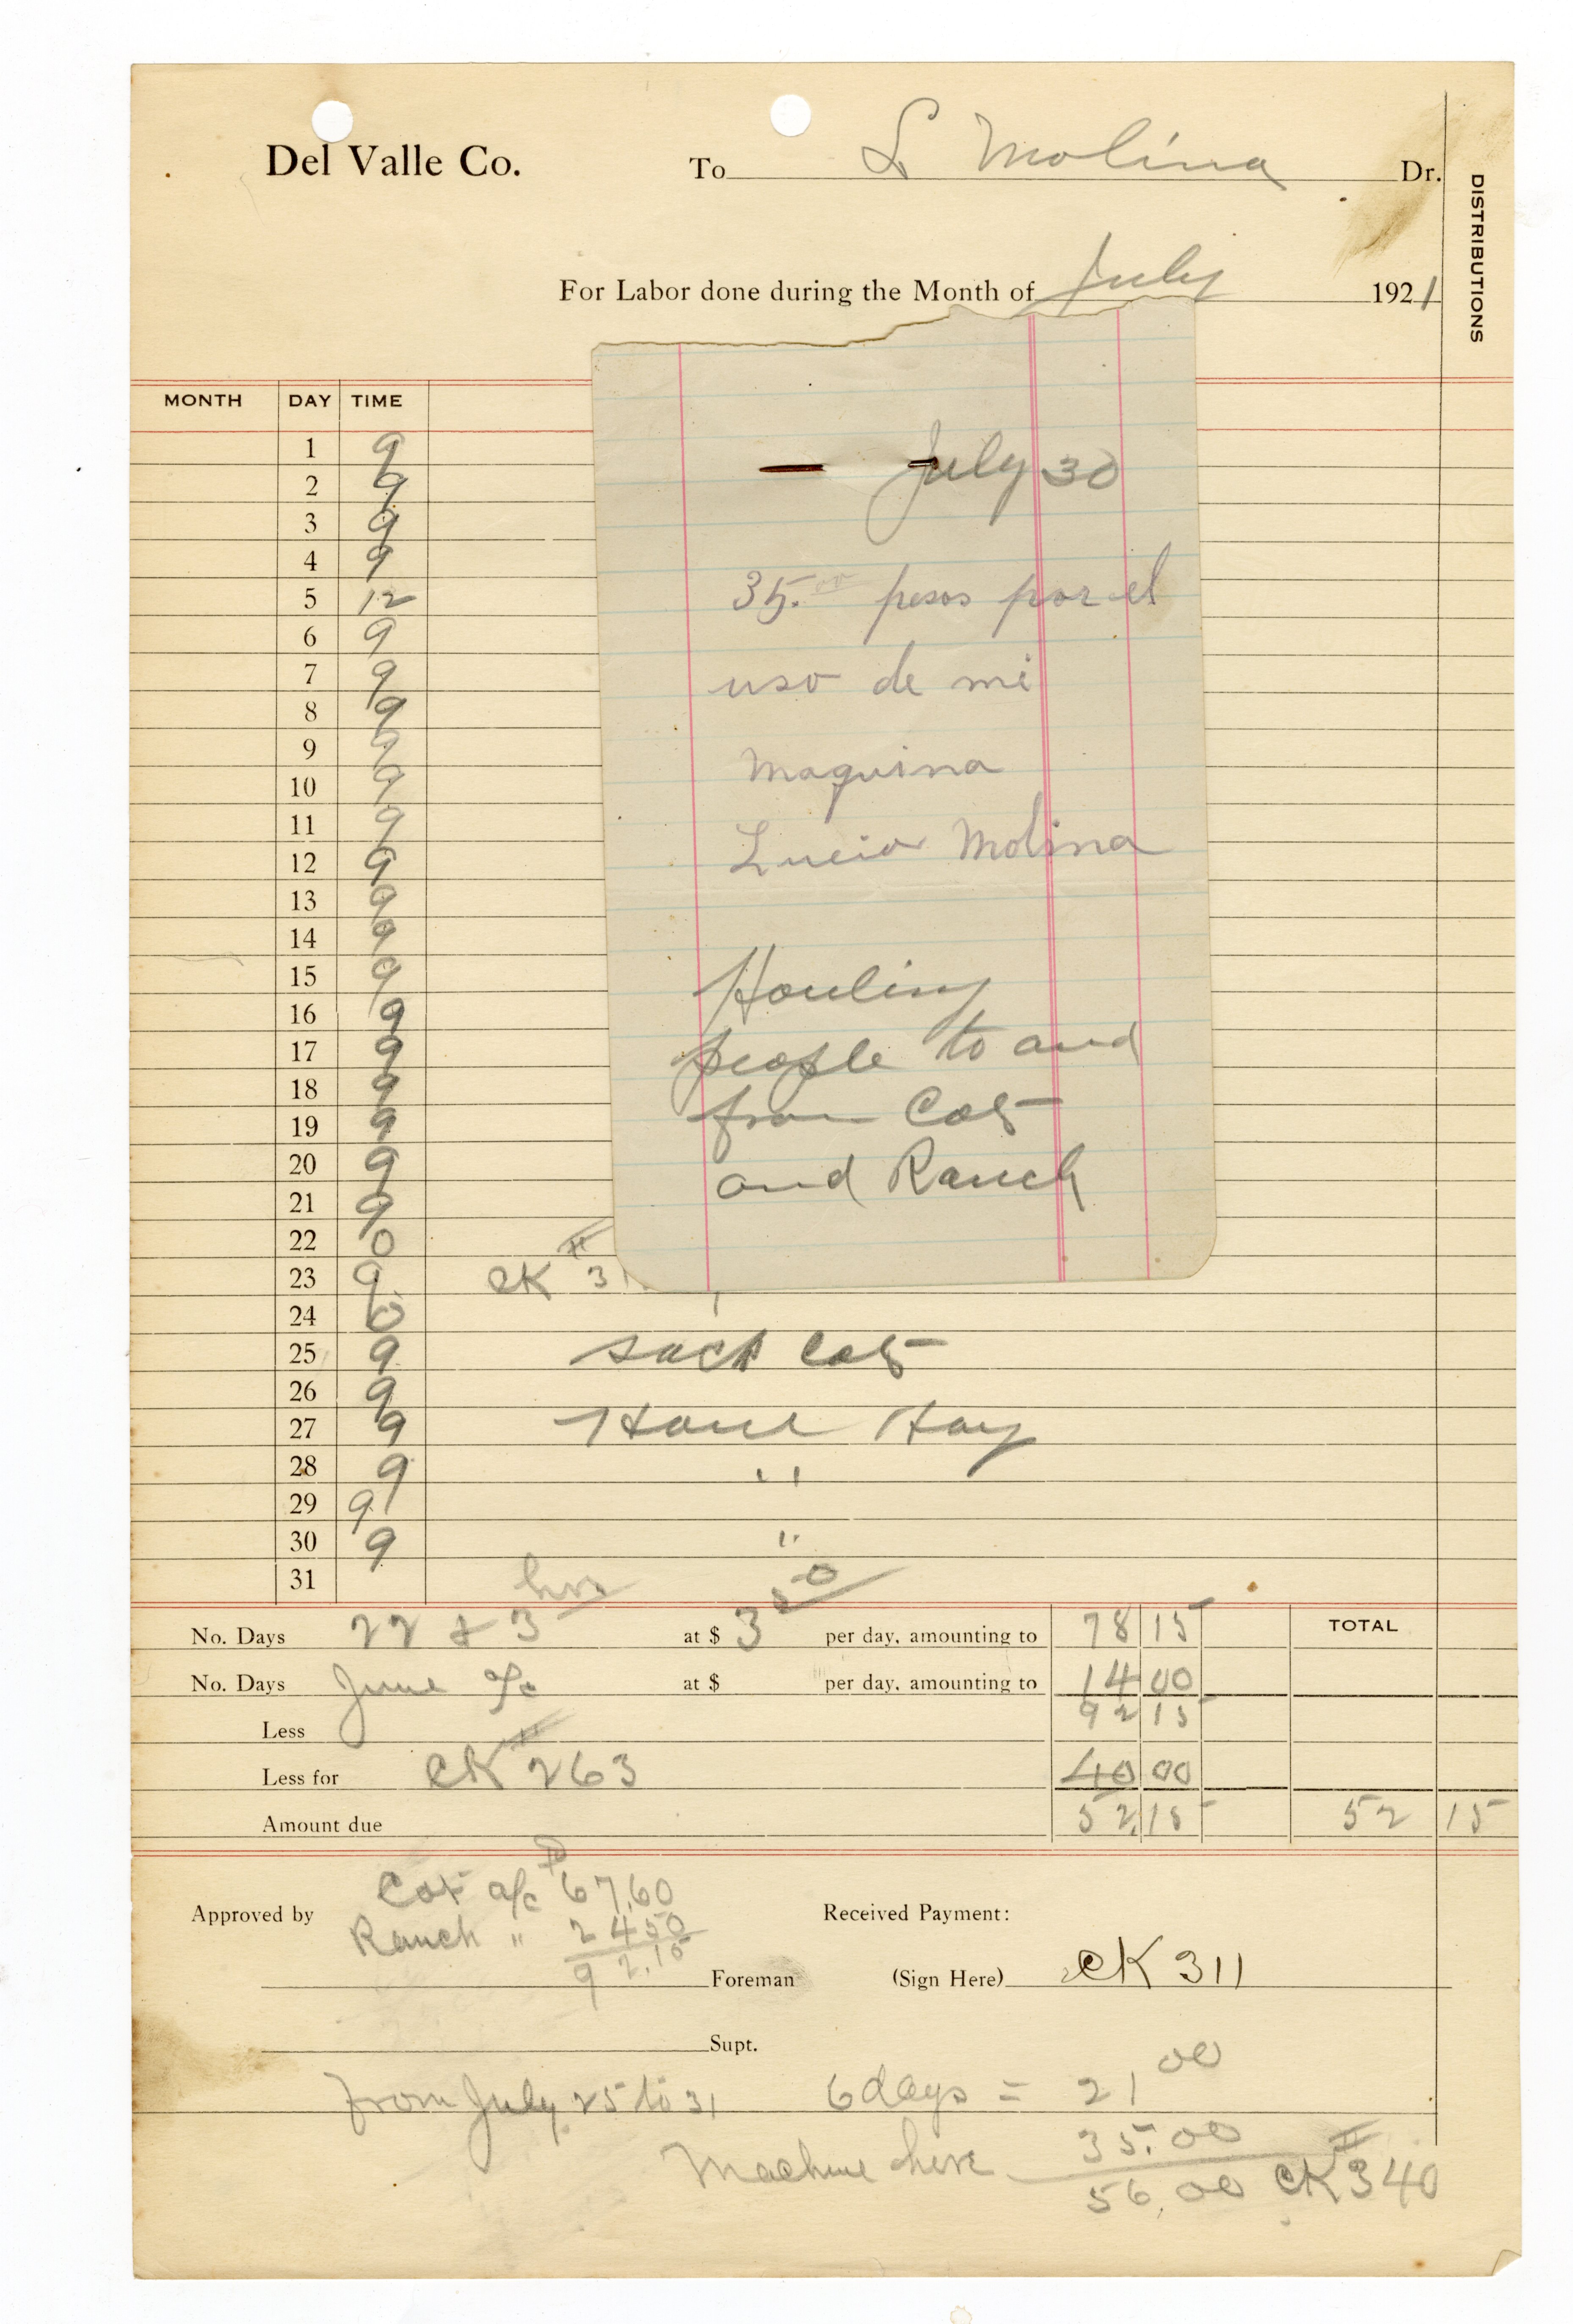 Del Valle Co. To L Molina Dr.
DISTRIBUTIONS
For Labor done during the Month of July 1921
MONTH DAY TIME
1 9
2 9
3 9
4 9
5 12
6 9
7 9
8 9
9 9
10 9
11 9
12 9
13 9
14 9
15 9
16 9
17 9
18 9
19 9
20 9
21 9
22 0
23 9 CK # 31
24 0
25 9 sack Cots
26 9
27 9 Haul Hay
28 9 " 
29 9
30 9 "
31
July 30
35.00 pesos por el
uso de mi
maquina
Lucio Molina
Houling
people to and
from Cots
and Ranch
No. Days 22 & 3 hrs at $ 3 50 per day, amounting to 78 15 TOTAL
No. Days June a/c at $ per day, amounting to 14 00
Less 92 15
Less for CK # 263 40 00
Amount due 52 15 52 15
Cot a/c $ 67.60
Approved by
Ranch " 24 50
92.15
Foreman
Received Payment:
(Sign Here) CK 311
Supt.
From July 25 to 31 6 days = 21 00
Machine hire 35.00
56.00 CK # 340